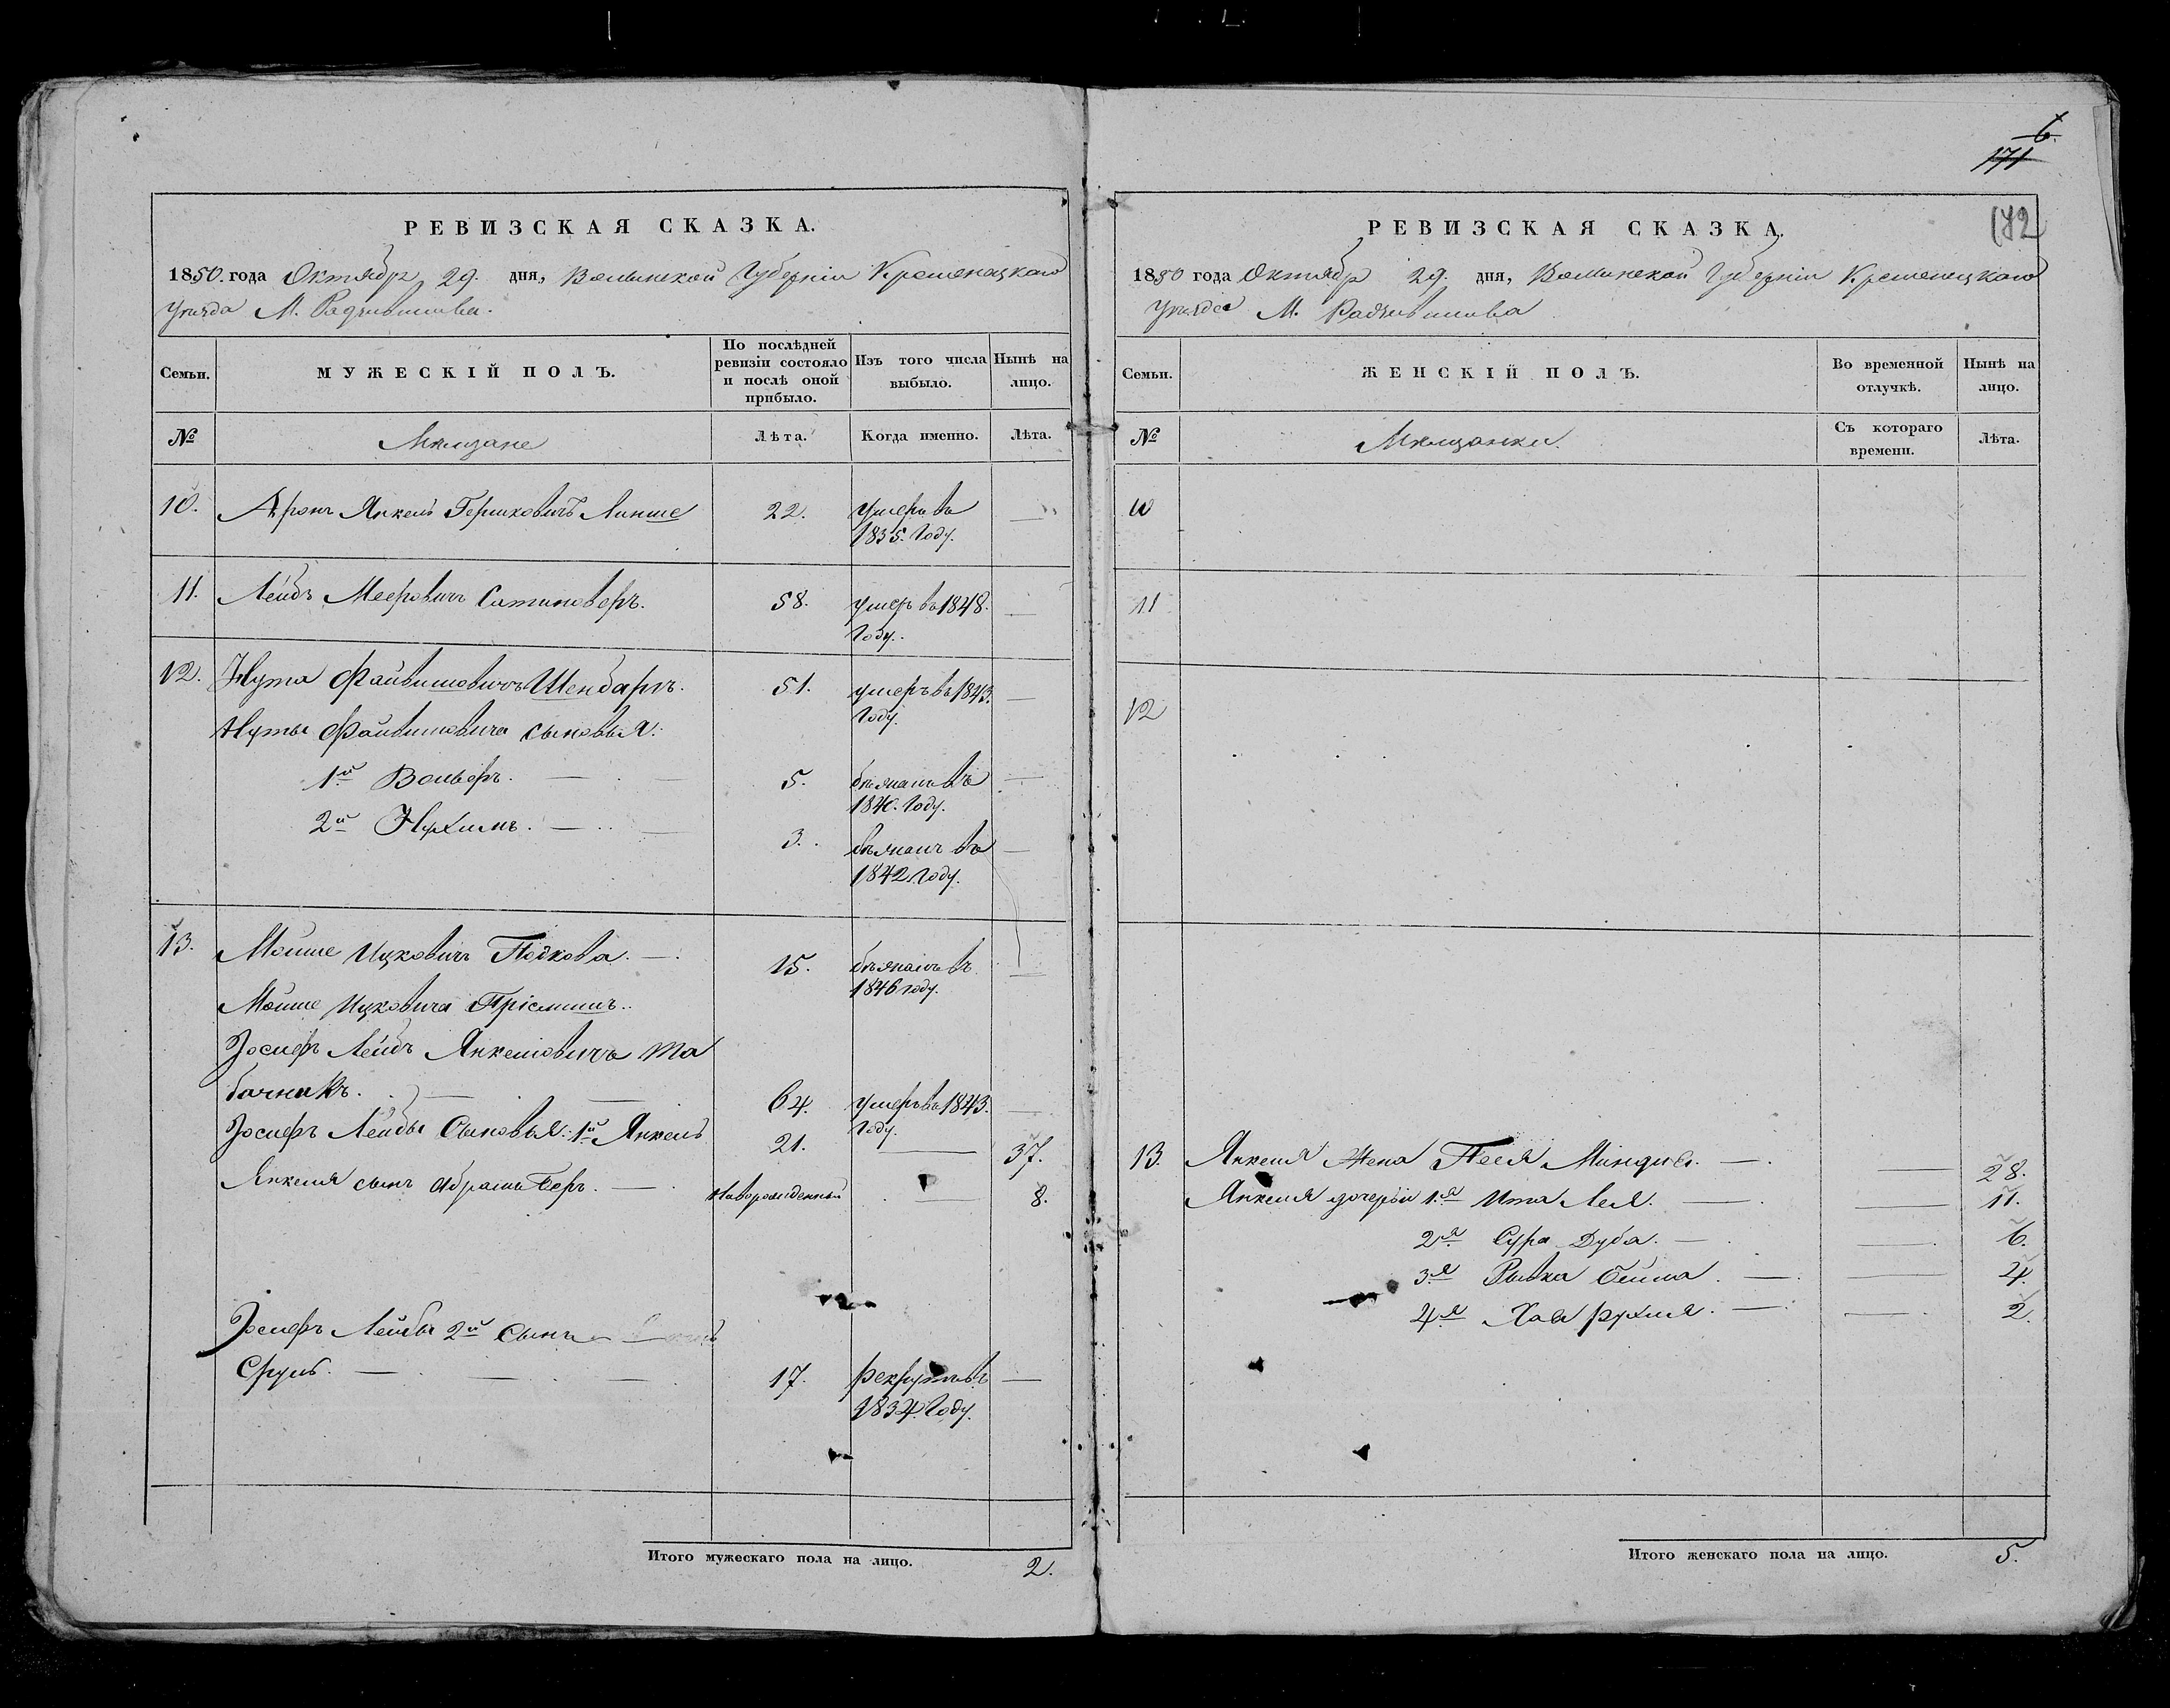 РЕВИЗСКАЯ СКАЗКА.
1850. года Октября 29. дня, Волынской Губерніи Кременецкаго
Уѣзда М. Радзивилова.
Семьи.
МУЖЕСКІЙ ПОЛЪ.
По послѣдней ревизіи состояло и послѣ оной прибыло.
Изъ того числа выбыло.
Нынѣ на лицо.
№
Мѣщане
Лѣта.
Когда именно.
Лѣта.
10. Аронъ Янкель Гершковичъ Линше 22. умеръ въ —
1835. Году.
11. Лейбъ Мееровичъ Сатановеръ. 58. умеръ въ 1848. —
Году.
12. Нута Файвишовичъ Шенбаръ. 51. умеръ въ 1843. —
Году.
Нуты Файвишовича сыновья:
1й Вольфъ. — — 5. бѣжалъ въ —
1840. Году.
2й Нухимъ. — — 3. бѣжалъ въ —
1842 Году.
13. Мошие Ицковичъ Подкова. — 15. бѣжалъ въ —
1846 году.
Мошие Ицковича Пріемышъ.
Іосифъ Лейбъ Янкеловичъ Та
бачникъ. — — 64. умеръ въ 1843. —
Году.
Іосифъ Лейбы Сыновья: 1й Янкель 21. — 37.
Янкеля сынъ Абрамъ Беръ. — Новорожденный — 8.
Іосифъ Лейбы 2й Сынъ
Сруль. — — — 17. рекрутъ въ —
1834. Году.
Итого мужескаго пола на лицо. 2.
6.
171
172
РЕВИЗСКАЯ СКАЗКА.
1850 года Октября 29. дня, Волынской Губерніи Кременецкаго
Уѣзда М. Радзивилова
Семьи.
ЖЕНСКІЙ ПОЛЪ.
Во временной отлучкѣ.
Нынѣ на лицо.
№
Мѣщанки.
Съ котораго времени.
Лѣта.
10
11
12
13. Янкеля Жена Песя Миндля. — — 28.
Янкеля дочери 1я Ита Лея. — — 11.
2я Сура Дуба. — — 6.
3я Рывка Бейла. — — 4.
4я Хая Рухля. — — 2.
Итого женскаго пола на лицо. 5.